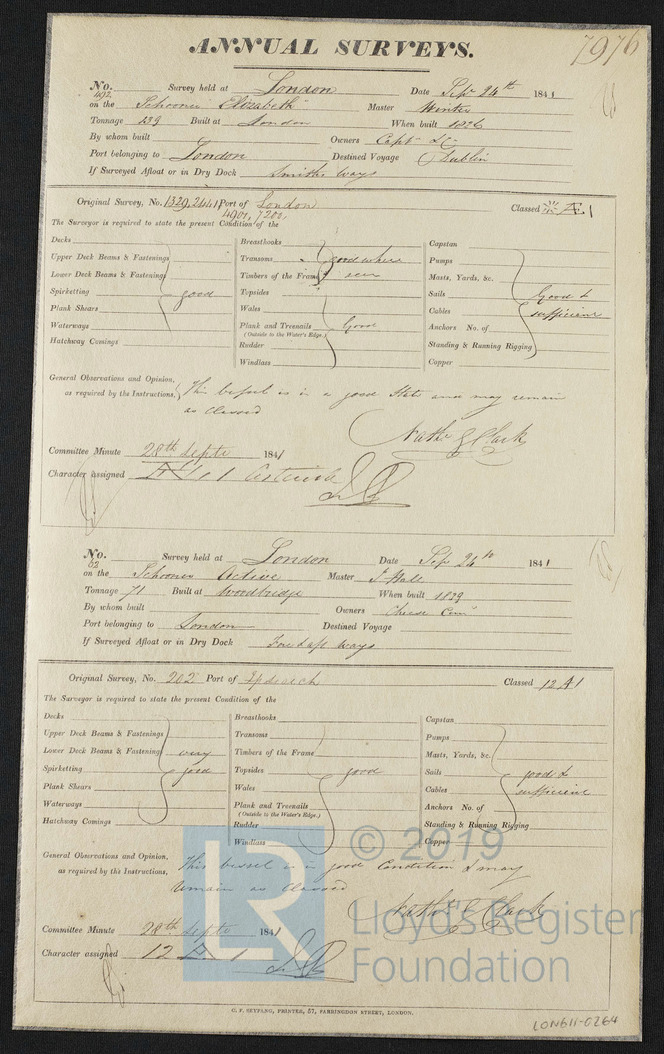 ANNUAL SURVEYS.
7976
No. 492 Survey held at London Date Sep 24th 1841
on the Schooner "Elizabeth" Master Winter
Tonnage 139 Built at London When built 1836
By whom built Owners Capt &c
Port belonging to London Destined Voyage Dublin
If Surveyed Afloat or in Dry Dock Smiths Ways
Original Survey, No. 1329, 2441 Port of London Classed Æ 1
4901, 7200,
The Surveyor is required to state the present Condition of the
Decks Breasthooks Capstan
Upper Deck Beams & Fastenings Transoms good where Pumps
Lower Deck Beams & Fastenings Timbers of the Frame seen Masts, Yards, &c.
Spirketting good Topsides Sails Good &
Plank Shears Wales Cables sufficient
Waterways Plank and Treenails Good Anchors No. of
(Outside to the Water's Edge.)
Hatchway Comings Rudder Standing & Running Rigging
Windlass Copper
General Observations and Opinion, This vessel is in a good State and may remain
as required by the Instructions, as Classed
Nathl G Clark
Committee Minute 28th Septr 1841
Character assigned
No. 62 Survey held at London Date Sep 24th 1841
on the Schooner Active Master J Hall
Tonnage 71 Built at Woodbridge When built 1839
By whom built Owners Cheese Comy
Port belonging to London Destined Voyage
If Surveyed Afloat or in Dry Dock Fore & aft Ways
Original Survey, No. 202 Port of Ipswich Classed 12 A 1
The Surveyor is required to state the present Condition of the
Decks Breasthooks Capstan
Upper Deck Beams & Fastenings Transoms Pumps
Lower Deck Beams & Fastening very Timbers of the Frame Masts, Yards, &c.
Spirketting good Topsides good Sails good &
Plank Shears Wales Cables sufficient
Waterways Plank and Treenails Anchors No. of
(Outside to the Water's Edge.)
Hatchway Comings Rudder Standing & Running Rigging
Windlass Copper
General Observations and Opinion, This vessel is in good Condition & may
as required by the Instructions, remain as Classed
Nathl G Clark
Committee Minute 28th Septr 1841
Character assigned 12 A 1
C. F. SEYFANG, PRINTER, 57, FARRINGDON STREET, LONDON.
LON611-0264
LR © 2019
Lloyd's Register
Foundation